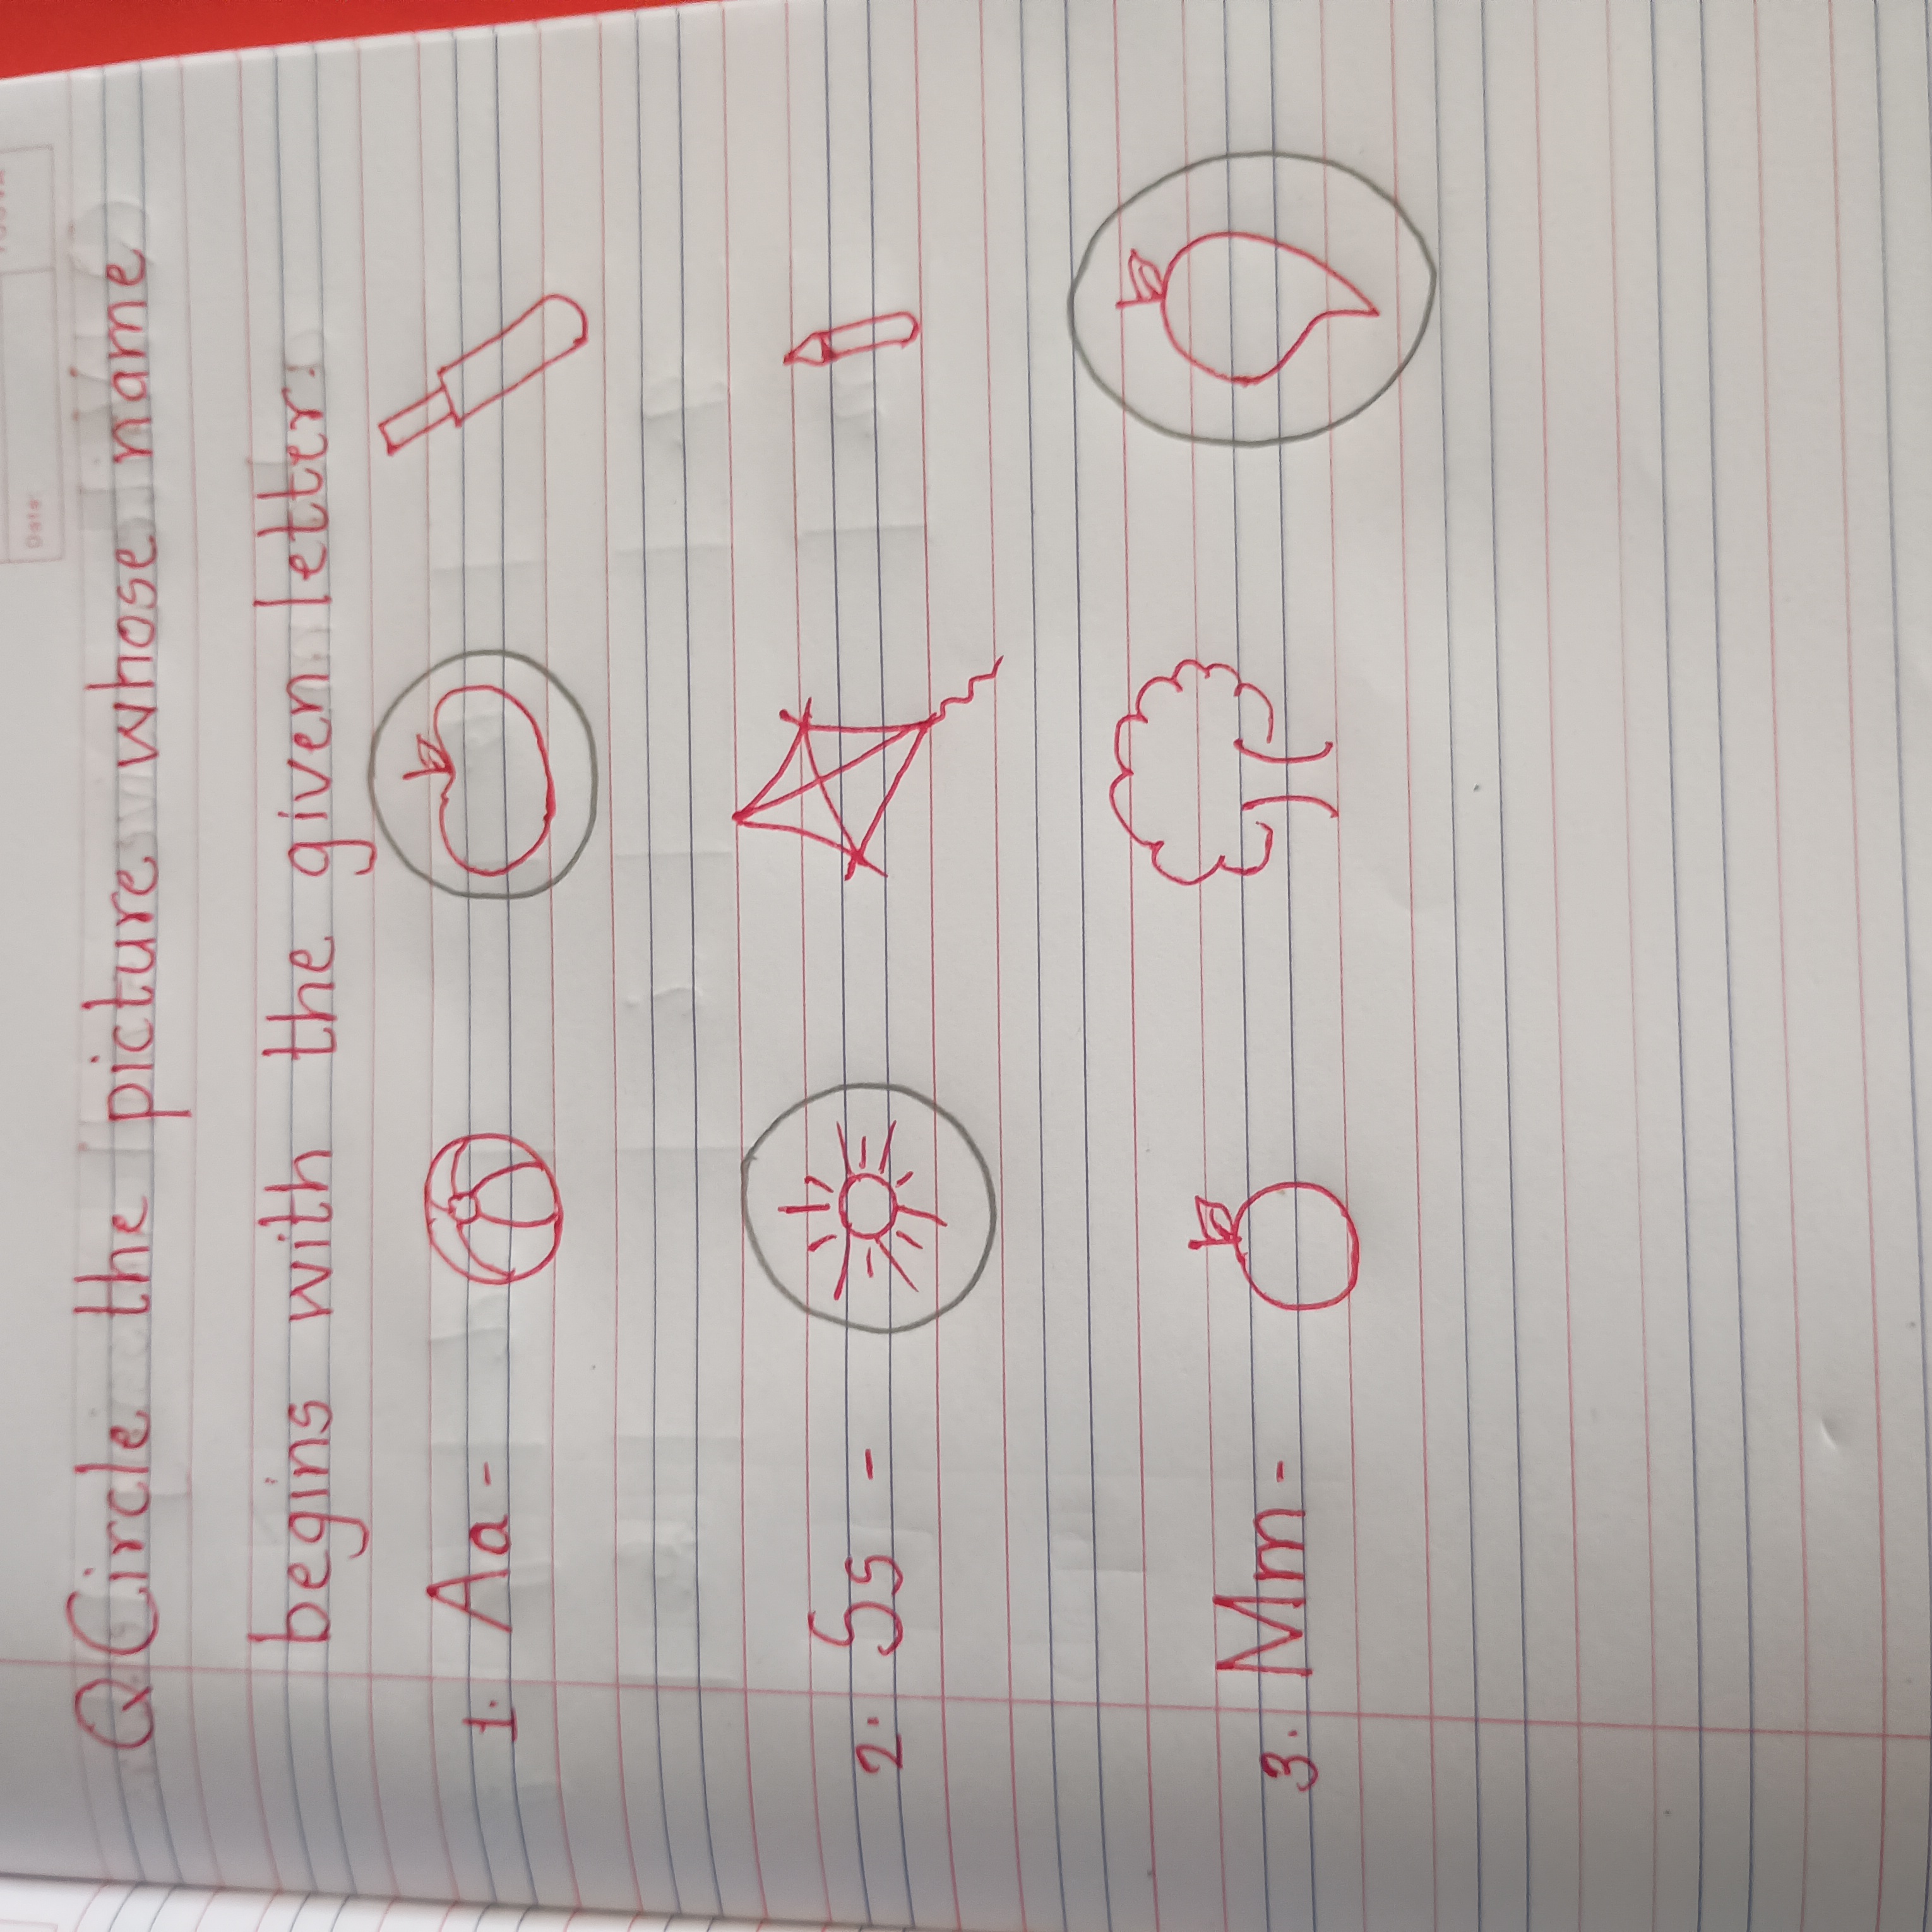 Q Circle the picture whose name
begins with the given letter:
1. Aa -
2. Ss -
3. Mm -
Date